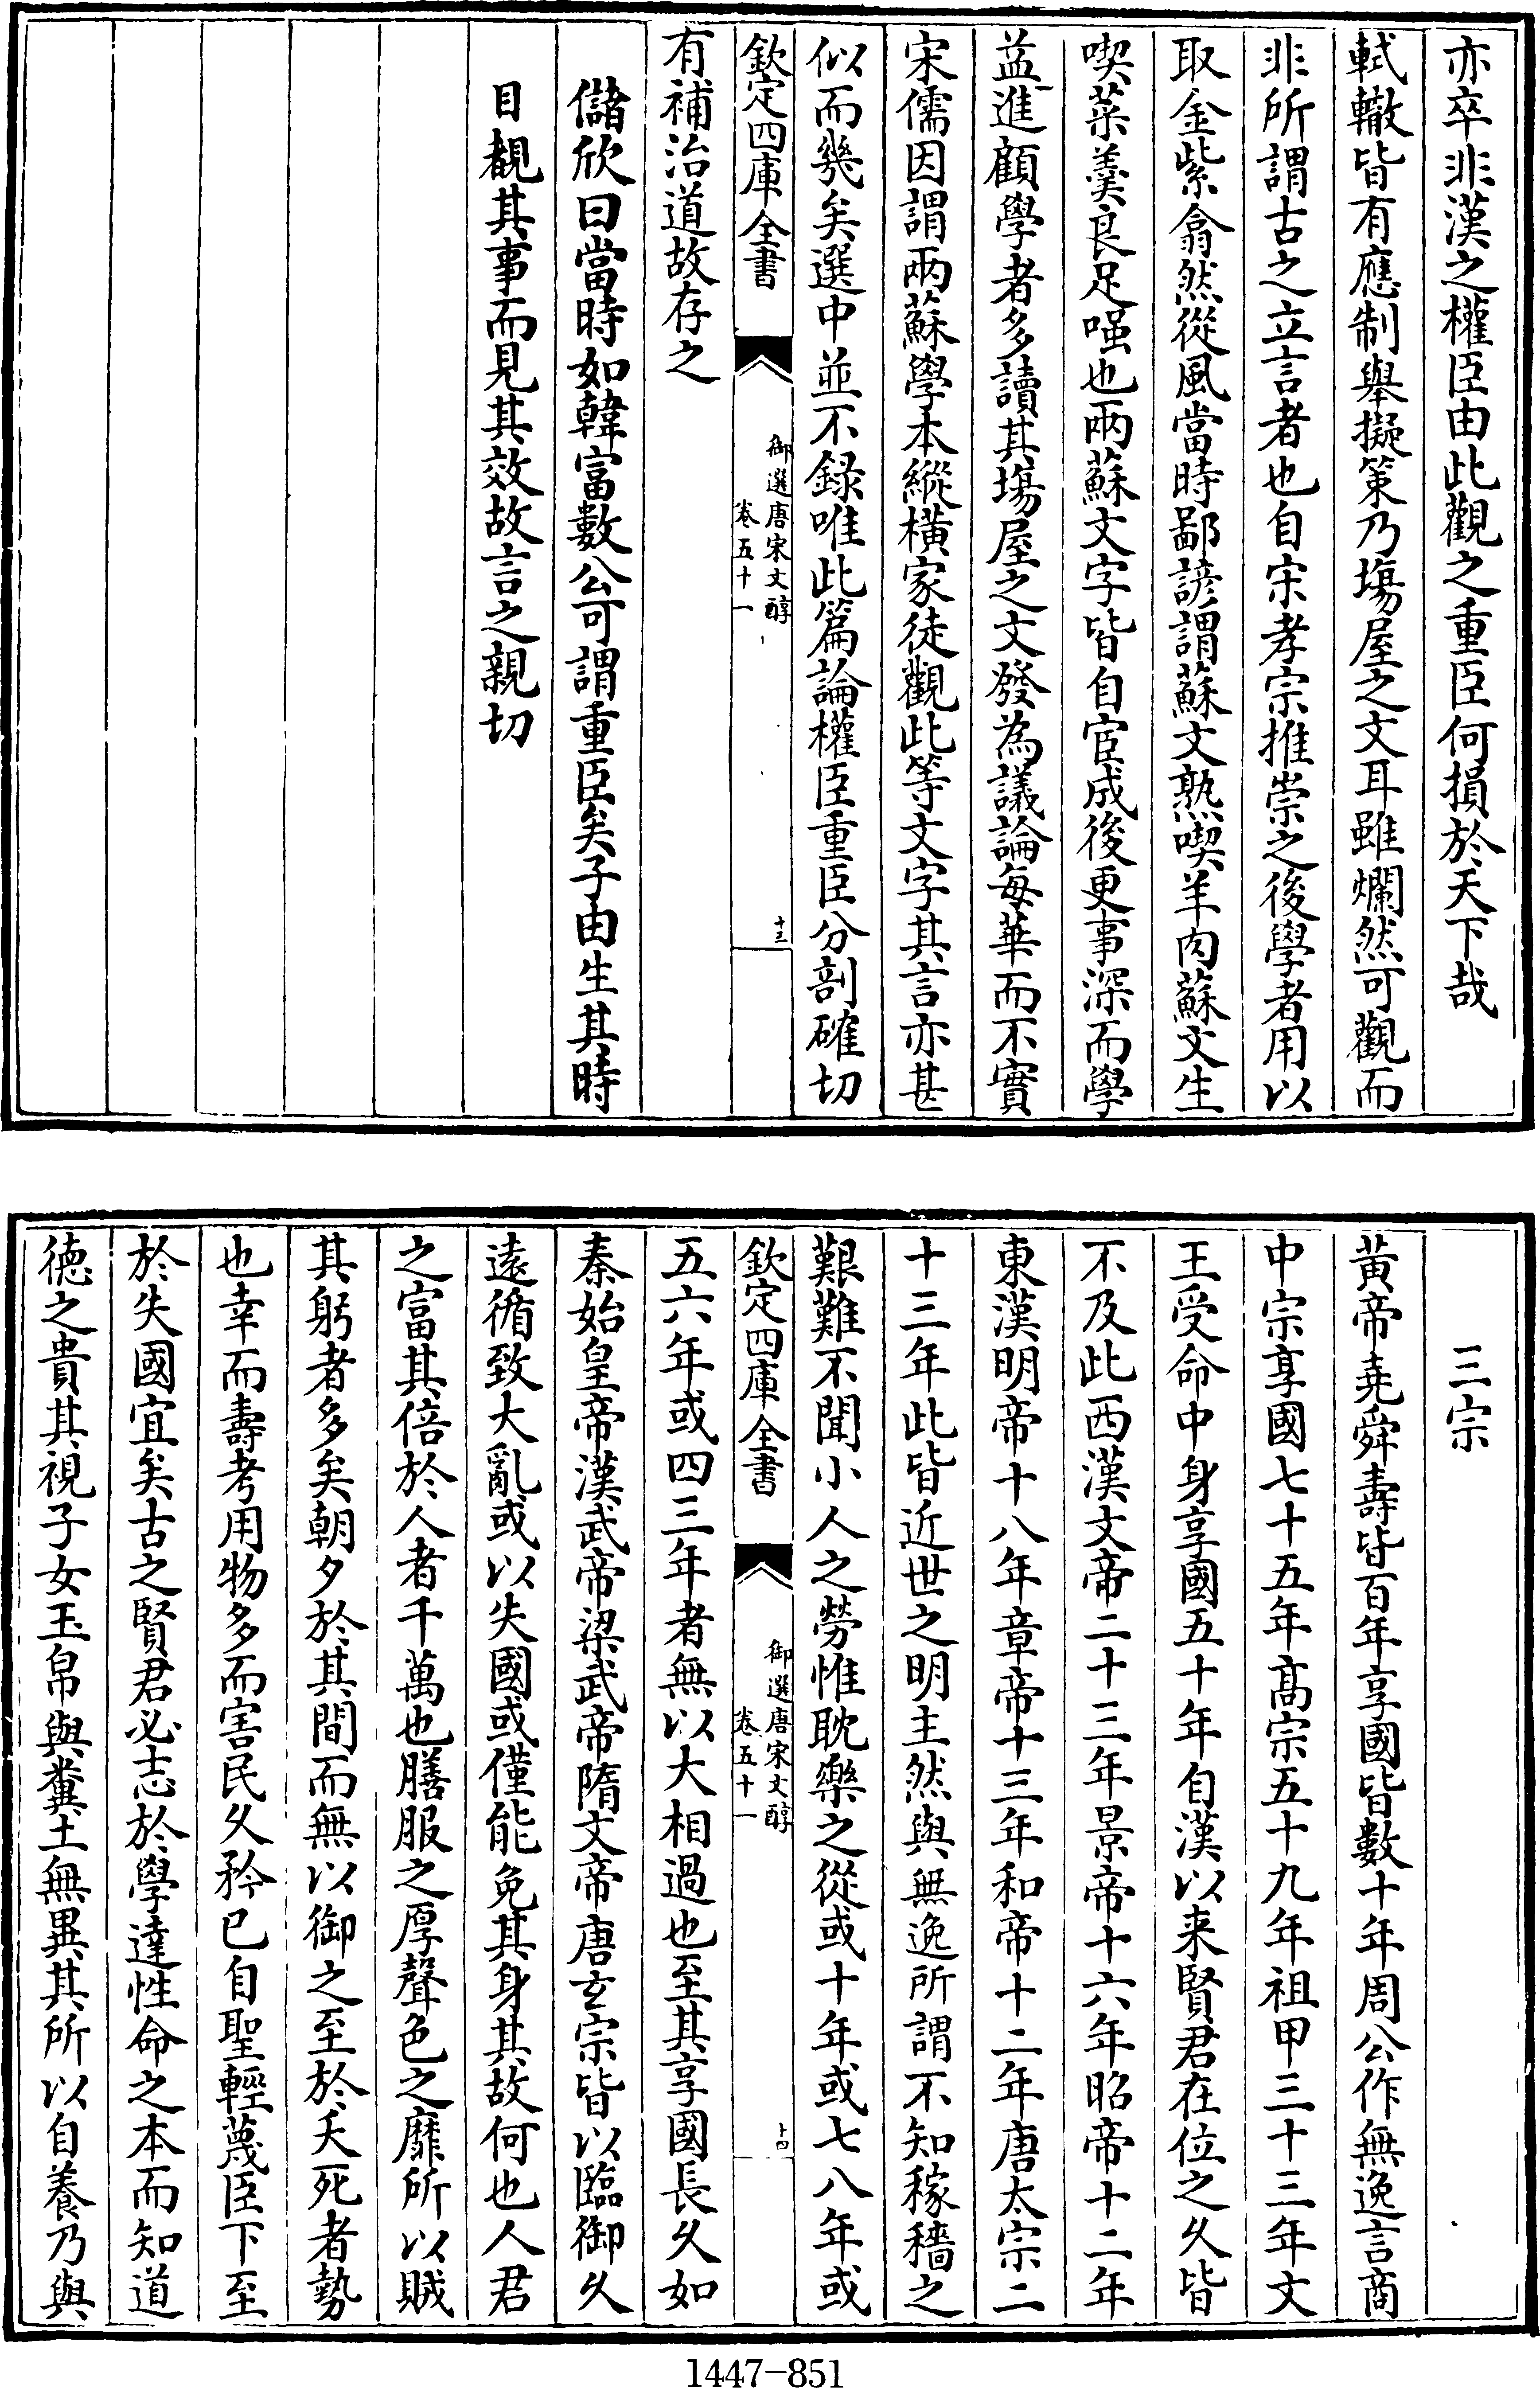 亦卒非漢之權臣由此觀之重臣何損於天下哉
軾轍皆有應制舉擬策乃塲屋之文耳雖爛然可觀而
非所謂古之立言者也自宋孝宗推崇之後學者用以
取金紫翕然從風當時鄙諺謂蘇文熟喫羊肉蘇文生
喫菜羹良足嗤也兩蘇文字皆自宦成後更事深而學
益進顧學者多讀其塲屋之文發為議論每華而不實
宋儒因謂兩蘇學本縱橫家徒觀此等文字其言亦甚
似而幾矣選中並不録唯此篇論權臣重臣分剖確切
欽定四庫全書
御選唐宋文醇
卷五十一
十三
有補治道故存之
儲欣曰當時如韓富數公可謂重臣矣子由生其時
目覩其事而見其效故言之親切
三宗
黃帝堯舜壽皆百年享國皆數十年周公作無逸言商
中宗享國七十五年高宗五十九年祖甲三十三年文
王受命中身享國五十年自漢以来賢君在位之久皆
不及此西漢文帝二十三年景帝十六年昭帝十二年
東漢明帝十八年章帝十三年和帝十二年唐太宗二
十三年此皆近世之明主然與無逸所謂不知稼穡之
艱難不聞小人之勞惟耽樂之從或十年或七八年或
欽定四庫全書
御選唐宋文醇
卷五十一
十四
五六年或四三年者無以大相過也至其享國長久如
秦始皇帝漢武帝梁武帝隋文帝唐玄宗皆以臨御久
遠循致大亂或以失國或僅能免其身其故何也人君
之富其倍於人者千萬也膳服之厚聲色之靡所以賊
其躬者多矣朝夕於其間而無以御之至於夭死者勢
也幸而壽考用物多而害民久矜已自聖輕蔑臣下至
於失國宜矣古之賢君必志於學達性命之本而知道
徳之貴其視子女玉帛與糞土無異其所以自養乃與
1447-851